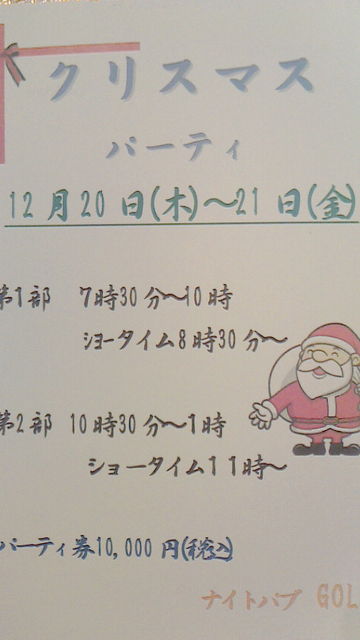 クリスマス
パーティ
12月20日(木)～21日(金)
第1部 7時30分～10時
ｼｮｰタイム8時30分～
第2部 10時30分～1時
ショータイム11時～
パーティ券10,000円(税込)
ナイトパブ GOL